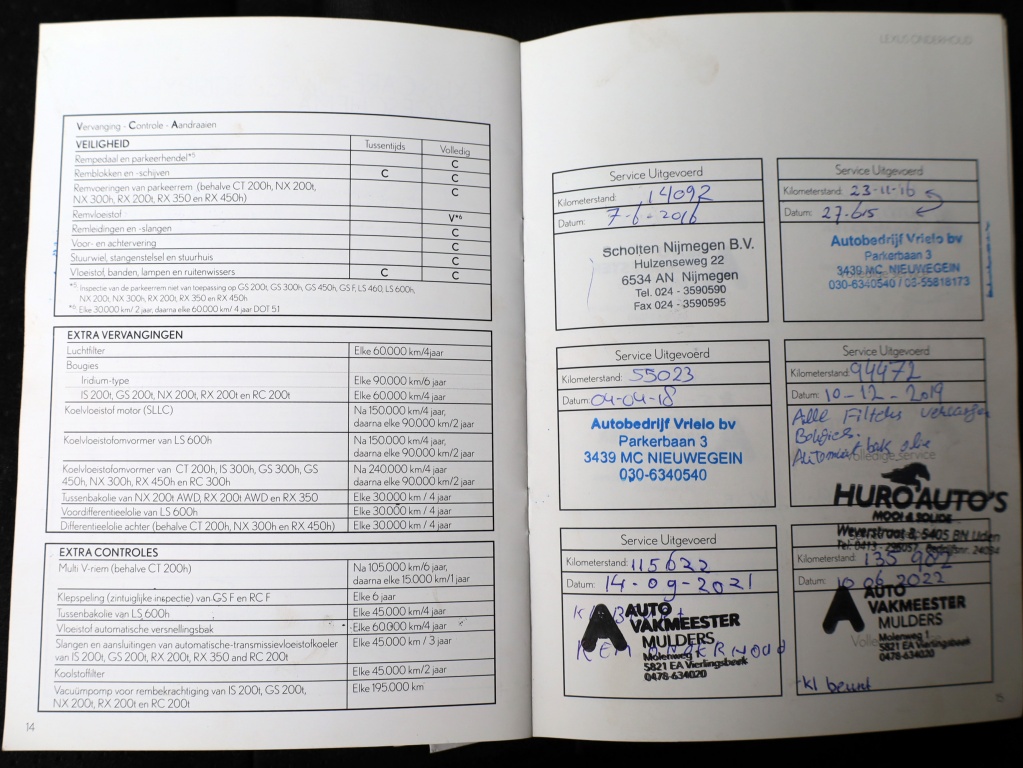 Vervanging - Controle - Aandraaien
VEILIGHEID Tussentijds Volledig
Rempedaal en parkeerhendel*⁵ C
Remblokken en -schijven C C
Remvoeringen van parkeerrem (behalve CT 200h, NX 200t, C
NX 300h, RX 200t, RX 350 en RX 450h)
Remvloeistof V*⁶
Remleidingen en -slangen C
Voor- en achtervering C
Stuurwiel, stangenstelsel en stuurhuis C
Vloeistof, banden, lampen en ruitenwissers C C
*⁵ Inspectie van de parkeerrem niet van toepassing op GS 200t, GS 300h, GS 450h, GS F, LS 460, LS 600h,
NX 200t, NX 300h, RX 200t, RX 350 en RX 450h
*⁶ Elke 30.000 km/ 2 jaar, daarna elke 60.000 km/ 4 jaar DOT 5.1
EXTRA VERVANGINGEN
Luchtfilter Elke 60.000 km/4jaar
Bougies
Iridium-type Elke 90.000 km/6 jaar
IS 200t, GS 200t, NX 200t, RX 200t en RC 200t Elke 60.000 km/4 jaar
Koelvloeistof motor (SLLC) Na 150.000 km/4 jaar,
daarna elke 90.000 km/2 jaar
Koelvloeistofomvormer van LS 600h Na 150.000 km/4 jaar,
daarna elke 90.000 km/2 jaar
Koelvloeistofomvormer van CT 200h, IS 300h, GS 300h, GS Na 240.000 km/4 jaar
450h, NX 300h, RX 450h en RC 300h daarna elke 90.000 km/2 jaar
Tussenbakolie van NX 200t AWD, RX 200t AWD en RX 350 Elke 30.000 km / 4 jaar
Voordifferentieelolie van LS 600h Elke 30.000 km / 4 jaar
Differentieelolie achter (behalve CT 200h, NX 300h en RX 450h) Elke 30.000 km / 4 jaar
EXTRA CONTROLES
Multi V-riem (behalve CT 200h) Na 105.000 km/6 jaar,
daarna elke 15.000 km/1 jaar
Klepspeling (zintuiglijke inspectie) van GS F en RC F Elke 6 jaar
Tussenbakolie van LS 600h Elke 45.000 km/4 jaar
Vloeistof automatische versnellingsbak Elke 60.000 km/4 jaar
Slangen en aansluitingen van automatische-transmissievloeistofkoeler Elke 45.000 km / 3 jaar
van IS 200t, GS 200t, RX 200t, RX 350 and RC 200t
Koolstoffilter Elke 45.000 km/2 jaar
Vacuümpomp voor rembekrachtiging van IS 200t, GS 200t, Elke 195.000 km
NX 200t, RX 200t en RC 200t
14
LEXUS ONDERHOUD
Service Uitgevoerd
Kilometerstand: 14092
Datum: 7-6-2016
Scholten Nijmegen B.V.
Hulzenseweg 22
6534 AN Nijmegen
Tel. 024 - 3590590
Fax 024 - 3590595
Service Uitgevoerd
Kilometerstand: 23-11-16
Datum: 27.615
Autobedrijf Vrielo bv
Parkerbaan 3
3439 MC NIEUWEGEIN
030-6340540 / 06-55818173
Service Uitgevoerd
Kilometerstand: 55023
Datum: 04-04-18
Autobedrijf Vrielo bv
Parkerbaan 3
3439 MC NIEUWEGEIN
030-6340540
Service Uitgevoerd
Kilometerstand: 94472
Datum: 10-12-2019
Alle Filters
Bougies.
Automaat bak olie
Volledige service
HURO AUTO'S
MOOI & SOLIDE
Weverstraat 8, 5405 BN Uden
Service Uitgevoerd
Kilometerstand: 115622
Datum: 14-09-2021
AUTO
VAKMEESTER
MULDERS
Molenweg 1
5821 EA Vierlingsbeek
0478-634020
Kilometerstand: 135 982
Datum: 10 06 2022
AUTO
VAKMEESTER
MULDERS
Molenweg 1
5821 EA Vierlingsbeek
0478-634020
kl beurt